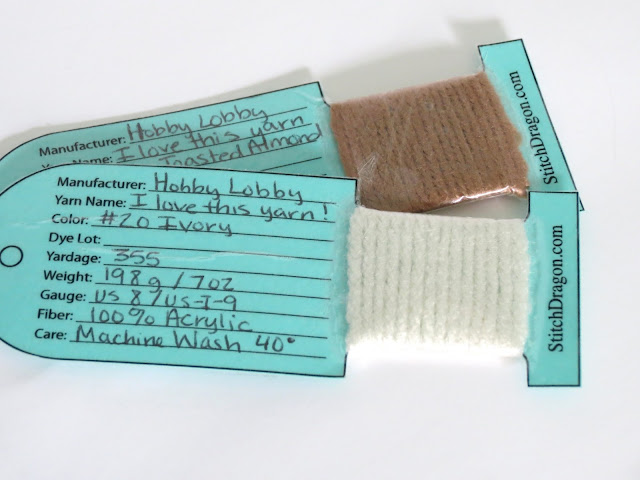 Manufacturer: Hobby Lobby
I love this yarn
Toasted Almond
StitchDragon.com
Manufacturer: Hobby Lobby
Yarn Name: I love this yarn!
Color: #20 Ivory
Dye Lot:
Yardage: 355
Weight: 198g / 7oz
Gauge: US 8 / US-I-9
Fiber: 100% Acrylic
Care: Machine Wash 40°
StitchDragon.com